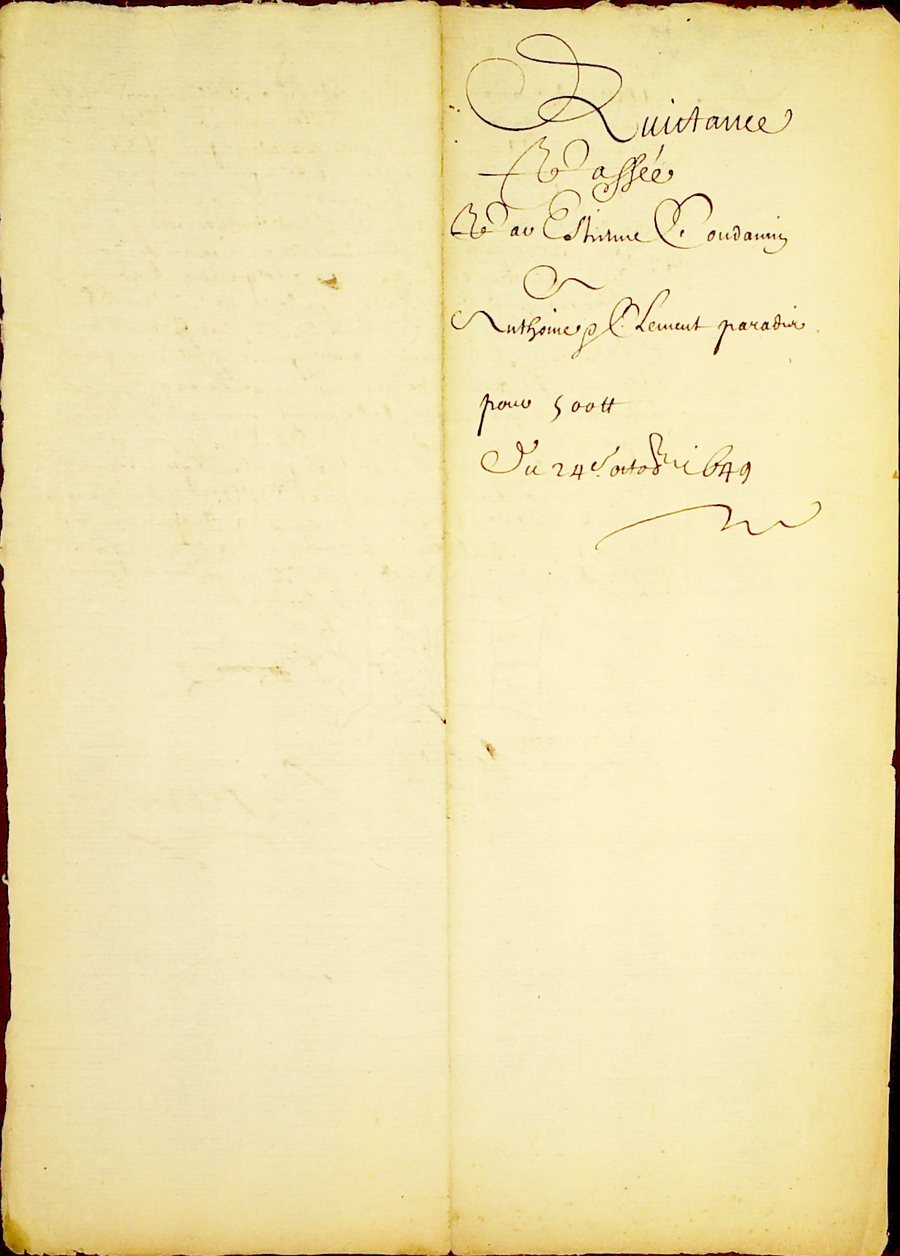 Quictance
Passée
Par Estienne Condamin
A
Anthoine & Clement paradis
pour 500tt
Du 24e octobre 1649